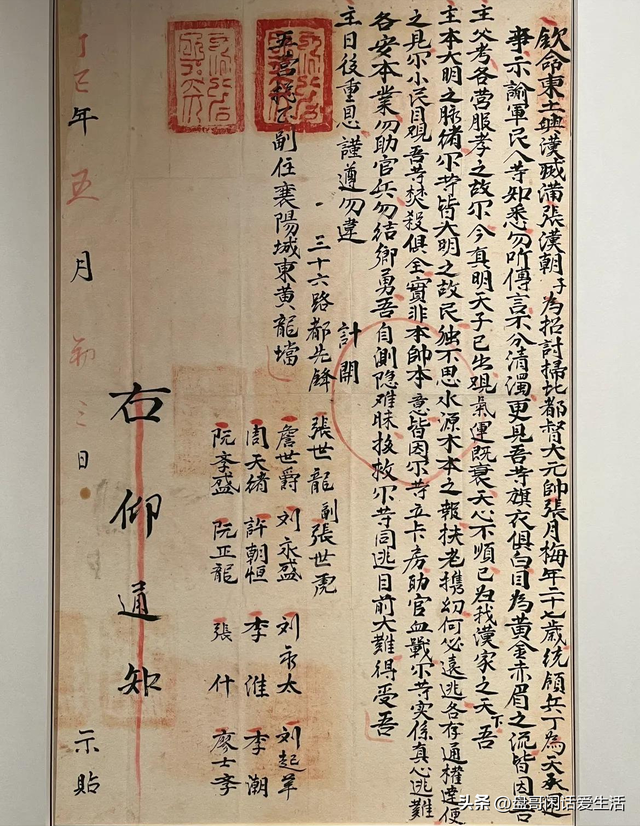 欽命東土興漢滅滿張漢朝子為招討掃北都督大元帥張月梅年二十七歲統領兵丁為天承運
事示諭軍民人等知悉勿听傳言不分清濁更見吾等旗衣俱白目為黃金赤眉之流皆因吾
主父考各营服孝之故尔今真明天子已出現氣運既衰天心不順已為我漢家之天下吾
主本大明之脉緒尔等皆大明之故民独不思水源木本之報扶老携幼何必遠逃各存通權達便
之見尔小民目覩吾等焚殺俱全實非本帥本意皆因尔等立卡房助官血戰尔等实係真心逃難
各安本業勿助官兵勿结鄉勇吾自測隐难昧拯救尔等同逃目前大難得受吾
主日後重恩謹遵勿違
計開
三十六路都先鋒 張世龍 副張世虎
詹世爵 刘永盛 刘永太 刘起苹
周天緒 許朝恒 李淮 李潮
阮李盛 阮正龍 張什 廖士李
副住襄陽城東黃龍壋
右仰通知
丁巳年五月初三日 示貼
头条 @盘哥闲话爱生活